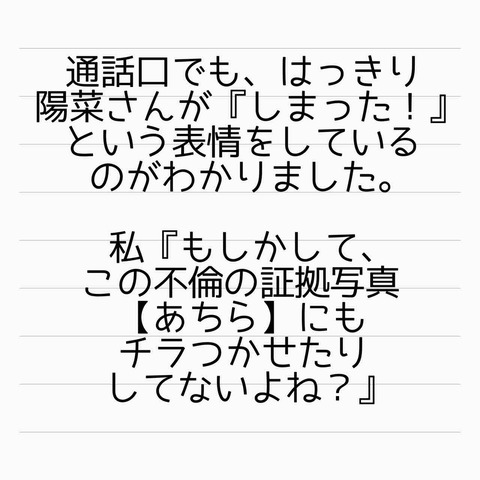 通話口でも、はっきり
陽菜さんが『しまった！』
という表情をしている
のがわかりました。
私『もしかして、
この不倫の証拠写真
【あちら】にも
チラつかせたり
してないよね？』